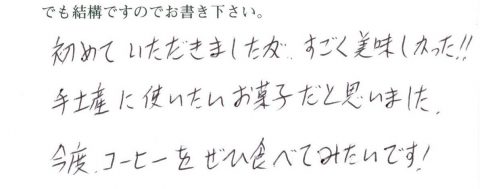 でも結構ですのでお書き下さい。
初めていただきましたが、すごく美味しかった!!
手土産に使いたいお菓子だと思いました。
今度、コーヒーをぜひ食べてみたいです!